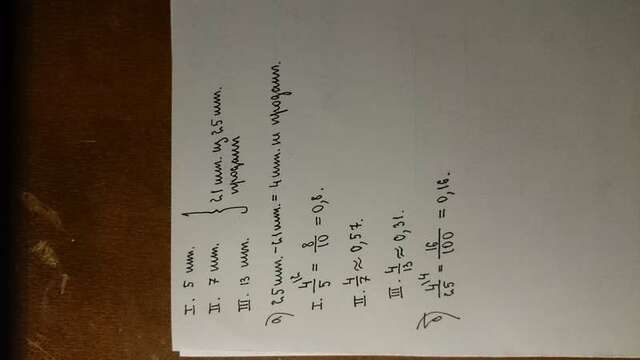 I. 5 шт.
II. 7 шт.
III. 13 шт.
} 21 шт. из 25 шт.
продали
а) 25 шт. - 21 шт. = 4 шт. не продали.
I. 4/5 ^(/2 = 8/10 = 0,8.
II. 4/7 ≈ 0,57.
III. 4/13 ≈ 0,31.
б) 4/25 ^(/4 = 16/100 = 0,16.